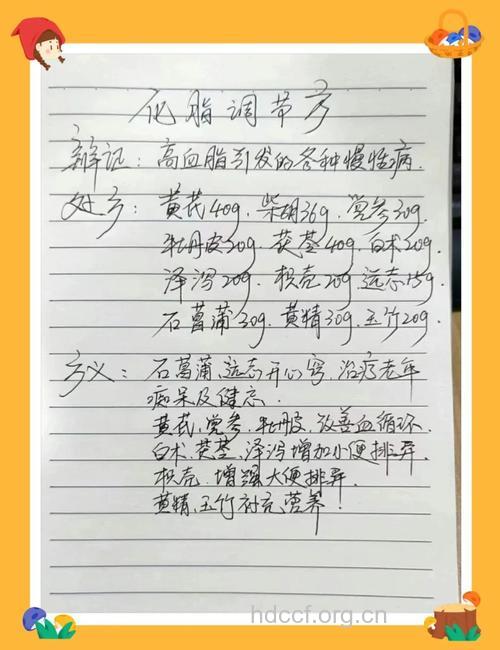 化脂调节方
辩证：高血脂引发的各种慢性病.
处方：黄芪40g.柴胡36g.党参30g.
牡丹皮20g.茯苓40g.白术20g.
泽泻20g.枳壳20g.远志15g.
石菖蒲30g.黄精30g.玉竹20g.
方义：石菖蒲、远志开心窍.治疗老年
痴呆及健忘.
黄芪、党参、牡丹皮、改善血循环.
白术、茯苓、泽泻增加小便排弃.
枳壳.增强大便排弃.
黄精、玉竹补充营养！
hdccf.org.cn